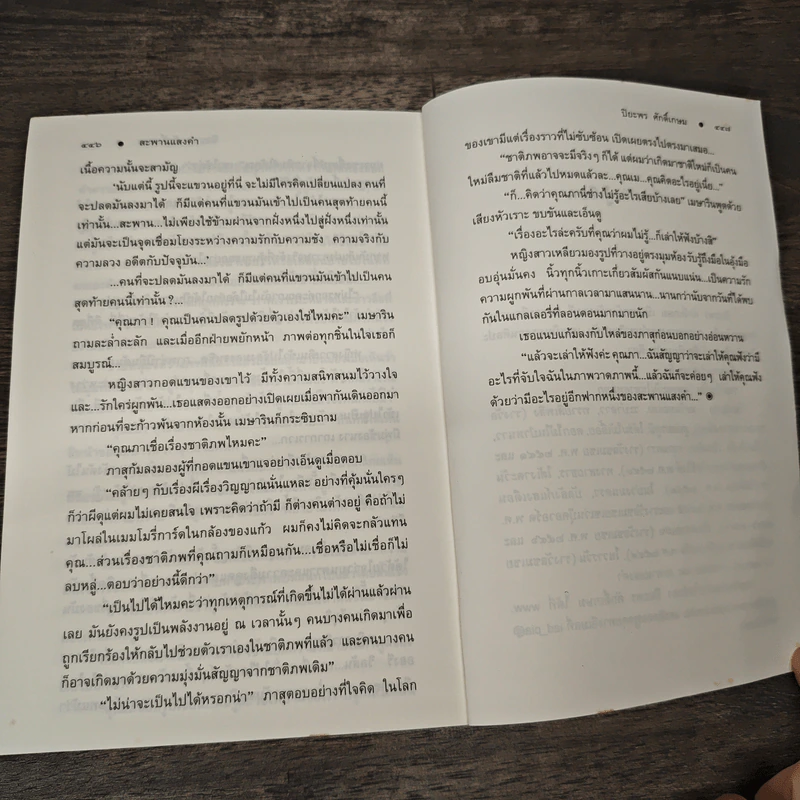 ๔๔๖ • สะพานแสงคำ
เนื้อความนั้นจะสามัญ
'นับแต่นี้ รูปนี้จะแขวนอยู่ที่นี่ จะไม่มีใครคิดเปลี่ยนแปลง คนที่
จะปลดมันลงมาได้ ก็มีแต่คนที่แขวนมันเข้าไปเป็นคนสุดท้ายคนนี้
เท่านั้น...สะพาน...ไม่เพียงใช้ข้ามผ่านจากฝั่งหนึ่งไปสู่ฝั่งหนึ่งเท่านั้น
แต่มันจะเป็นจุดเชื่อมโยงระหว่างความรักกับความชัง ความจริงกับ
ความลวง อดีตกับปัจจุบัน...'
...คนที่จะปลดมันลงมาได้ ก็มีแต่คนที่แขวนมันเข้าไปเป็นคน
สุดท้ายคนนี้เท่านั้น ?...
"คุณภา ! คุณเป็นคนปลดรูปด้วยตัวเองใช่ไหมคะ" เมษาริน
ถามละล่ำละลัก และเมื่ออีกฝ่ายพยักหน้า ภาพต่อทุกชิ้นในใจเธอก็
สมบูรณ์...
หญิงสาวกอดแขนของเขาไว้ มีทั้งความสนิทสนมไว้วางใจ
และ...รักใคร่ผูกพัน...เธอแสดงออกอย่างเปิดเผยเมื่อพากันเดินออกมา
หากก่อนที่จะก้าวพ้นจากห้องนั้น เมษารินก็กระซิบถาม
"คุณภาเชื่อเรื่องชาติภพไหมคะ"
ภาสุก้มลงมองผู้ที่กอดแขนเขาแจอย่างเอ็นดูเมื่อตอบ
"คล้ายๆ กับเรื่องผีเรื่องวิญญาณนั่นแหละ อย่างที่คุ้มนั่นใครๆ
ก็ว่าผีดุแต่ผมไม่เคยสนใจ เพราะคิดว่าถ้ามี ก็ต่างคนต่างอยู่ คือถ้าไม่
มาโผล่ในเมมโมรี่การ์ดในกล้องของแก้ว ผมก็คงไม่คิดจะกลัวแทน
คุณ...ส่วนเรื่องชาติภพที่คุณถามก็เหมือนกัน...เชื่อหรือไม่เชื่อก็ไม่
ลบหลู่...ตอบว่าอย่างนี้ดีกว่า"
"เป็นไปได้ไหมคะว่าทุกเหตุการณ์ที่เกิดขึ้นไม่ได้ผ่านแล้วผ่าน
เลย มันยังคงรูปเป็นพลังงานอยู่ ณ เวลานั้นๆ คนบางคนเกิดมาเพื่อ
ถูกเรียกร้องให้กลับไปช่วยตัวเราเองในชาติภพที่แล้ว และคนบางคน
ก็อาจเกิดมาด้วยความมุ่งมั่นสัญญาจากชาติภพเดิม"
"ไม่น่าจะเป็นไปได้หรอกน่า" ภาสุตอบอย่างที่ใจคิด ในโลก
ปิยะพร ศักดิ์เกษม • ๔๔๗
ของเขามีแต่เรื่องราวที่ไม่ซับซ้อน เปิดเผยตรงไปตรงมาเสมอ...
"ชาติภพอาจจะมีจริงๆ ก็ได้ แต่ผมว่าเกิดมาชาติใหม่ก็เป็นคน
ใหม่ลืมชาติที่แล้วไปหมดแล้วละ...คุณเม...คุณคิดอะไรอยู่เนี่ย..."
"ก็...คิดว่าคุณภานี่ช่างไม่รู้อะไรเสียบ้างเลย" เมษารินพูดด้วย
เสียงหัวเราะ ขบขันและเอ็นดู
"เรื่องอะไรล่ะครับที่คุณว่าผมไม่รู้...ก็เล่าให้ฟังบ้างสิ"
หญิงสาวเหลียวมองรูปที่วางอยู่ตรงมุมห้องรับรู้ถึงมือในอุ้งมือ
อบอุ่นมั่นคง นิ้วทุกนิ้วเกาะเกี่ยวสัมผัสกันแนบแน่น...เป็นความรัก
ความผูกพันที่ผ่านกาลเวลามาแสนนาน...นานกว่านับจากวันที่ได้พบ
กันในแกลเลอรี่ที่ลอนดอนมากมายนัก
เธอแนบแก้มลงกับไหล่ของภาสุก่อนบอกอย่างอ่อนหวาน
"แล้วจะเล่าให้ฟังค่ะ คุณภา...ฉันสัญญาว่าจะเล่าให้คุณฟังว่ามี
อะไรที่จับใจฉันในภาพวาดภาพนี้...แล้วฉันก็จะค่อยๆ เล่าให้คุณฟัง
ด้วยว่ามีอะไรอยู่อีกฟากหนึ่งของสะพานแสงคำ..." ๏